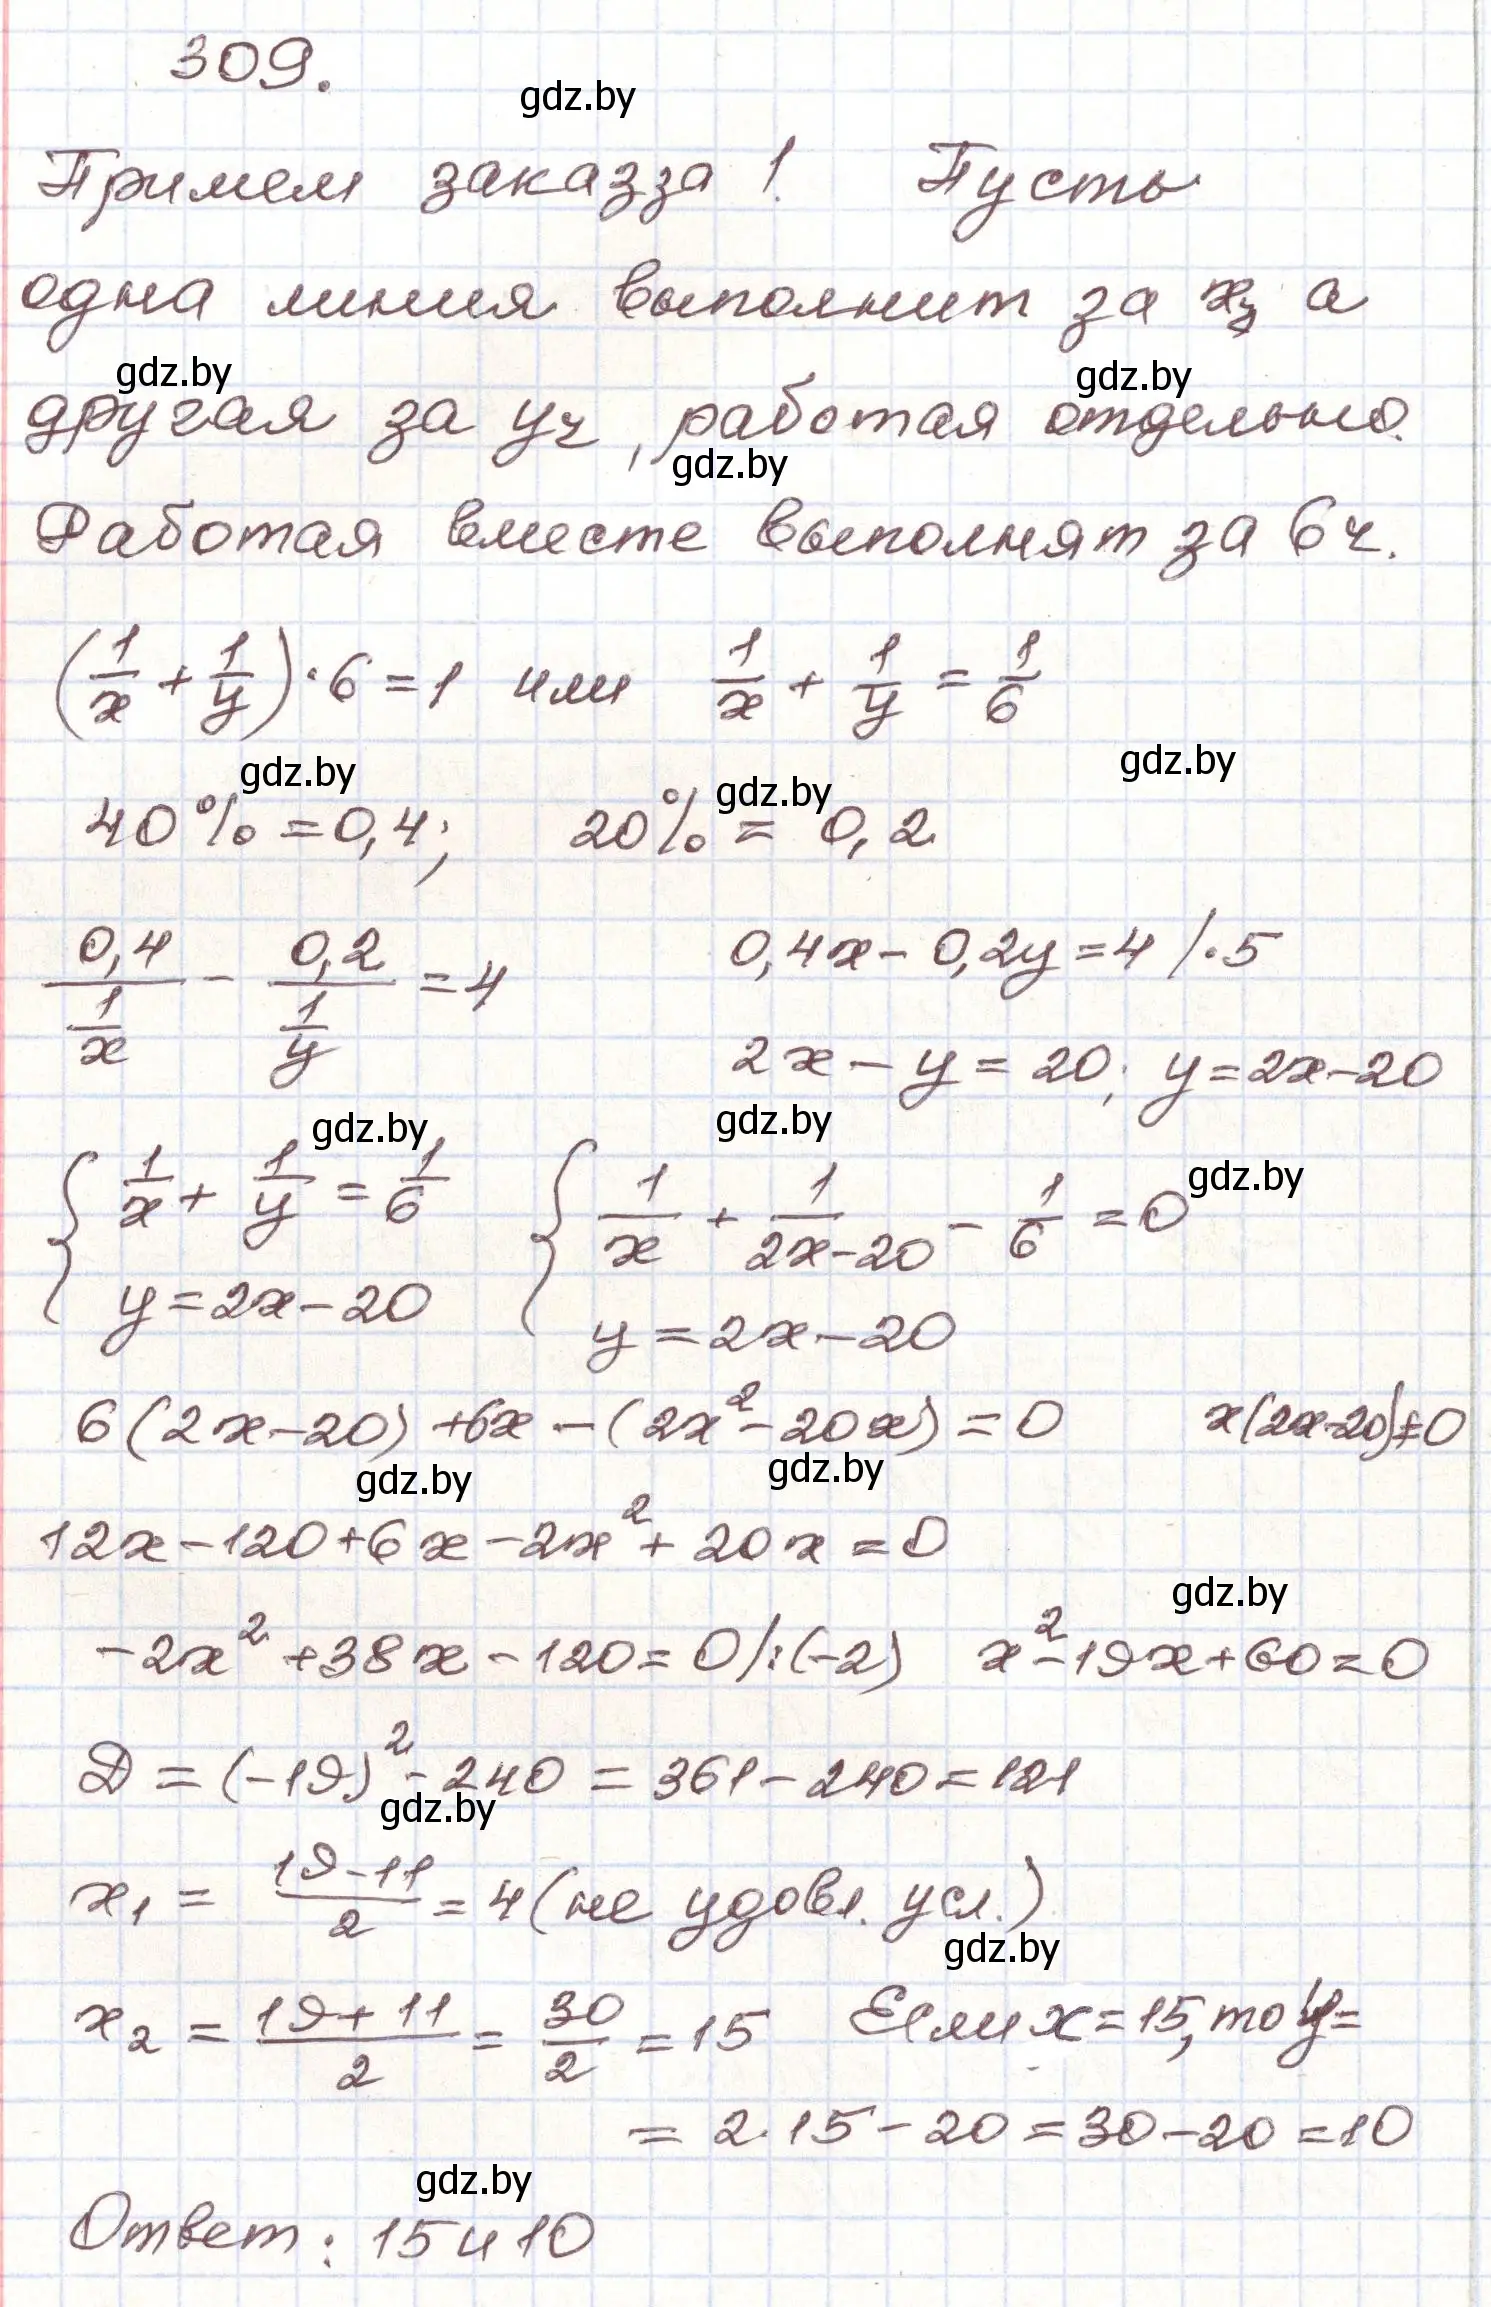 309.
gdz.by
Примем заказза 1. Пусть
одна линия выполнит за xч а
gdz.by gdz.by
другая за yч, работая отдельно.
gdz.by
Работая вместе выполнят за 6ч.
(1/x + 1/y)·6=1 или 1/x + 1/y = 1/6
gdz.by gdz.by gdz.by
40%=0,4; 20% = 0,2
0,4/(1/x) - 0,2/(1/y) = 4 0,4x-0,2y=4 /·5
2x-y=20; y=2x-20
gdz.by gdz.by gdz.by
{ 1/x + 1/y = 1/6 { 1/x + 1/(2x-20) - 1/6 = 0
y=2x-20 y=2x-20
6(2x-20)+6x-(2x²-20x)=0 x(2x-20)≠0
gdz.by gdz.by
12x-120+6x-2x²+20x=0
gdz.by
-2x²+38x-120=0/:(-2) x²-19x+60=0
Д=(-19)²-240=361-240=121
gdz.by
x₁ = (19-11)/2 = 4 (не удовл. усл.)
gdz.by
x₂ = (19+11)/2 = 30/2 = 15 Если x=15, то y=
= 2·15-20=30-20=10
gdz.by
Ответ: 15 и 10